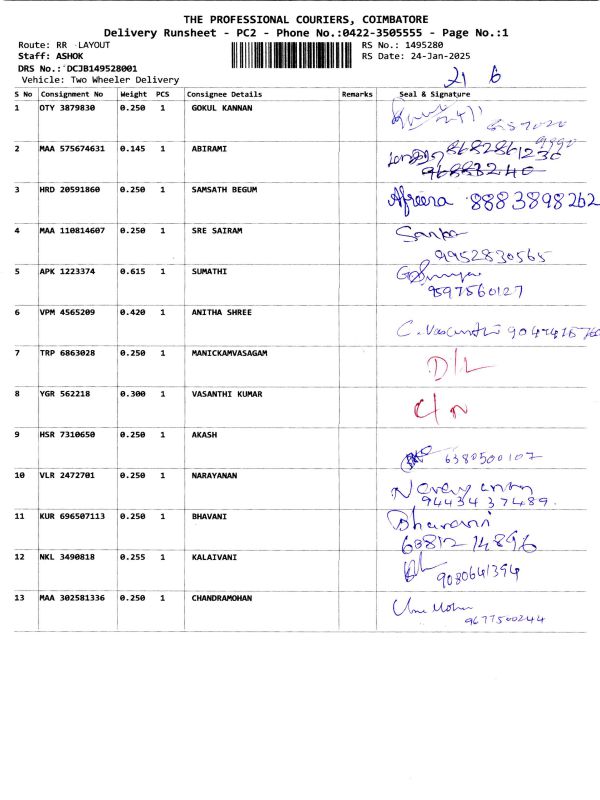 THE PROFESSIONAL COURIERS, COIMBATORE
Delivery Runsheet - PC2 - Phone No.:0422-3505555 - Page No.:1
Route: RR LAYOUT RS No.: 1495280
Staff: ASHOK RS Date: 24-Jan-2025
DRS No.: DCJB149528001
Vehicle: Two Wheeler Delivery 21 6
S No Consignment No Weight PCS Consignee Details Remarks Seal & Signature
1 OTY 3879830 0.250 1 GOKUL KANNAN
2 MAA 575674631 0.145 1 ABIRAMI
3 HRD 20591860 0.250 1 SAMSATH BEGUM Afreena 8883898262
4 MAA 110814607 0.250 1 SRE SAIRAM
9952830565
5 APK 1223374 0.615 1 SUMATHI
9597560127
6 VPM 4565209 0.420 1 ANITHA SHREE
C. Vasanthi
7 TRP 6863028 0.250 1 MANICKAMVASAGAM D/L
8 YGR 562218 0.300 1 VASANTHI KUMAR C/N
9 HSR 7310650 0.250 1 AKASH
6380500107
10 VLR 2472701 0.250 1 NARAYANAN
9443437489.
11 KUR 696507113 0.250 1 BHAVANI Bhavani
12 NKL 3490818 0.255 1 KALAIVANI
9080641394
13 MAA 302581336 0.250 1 CHANDRAMOHAN
9677500244